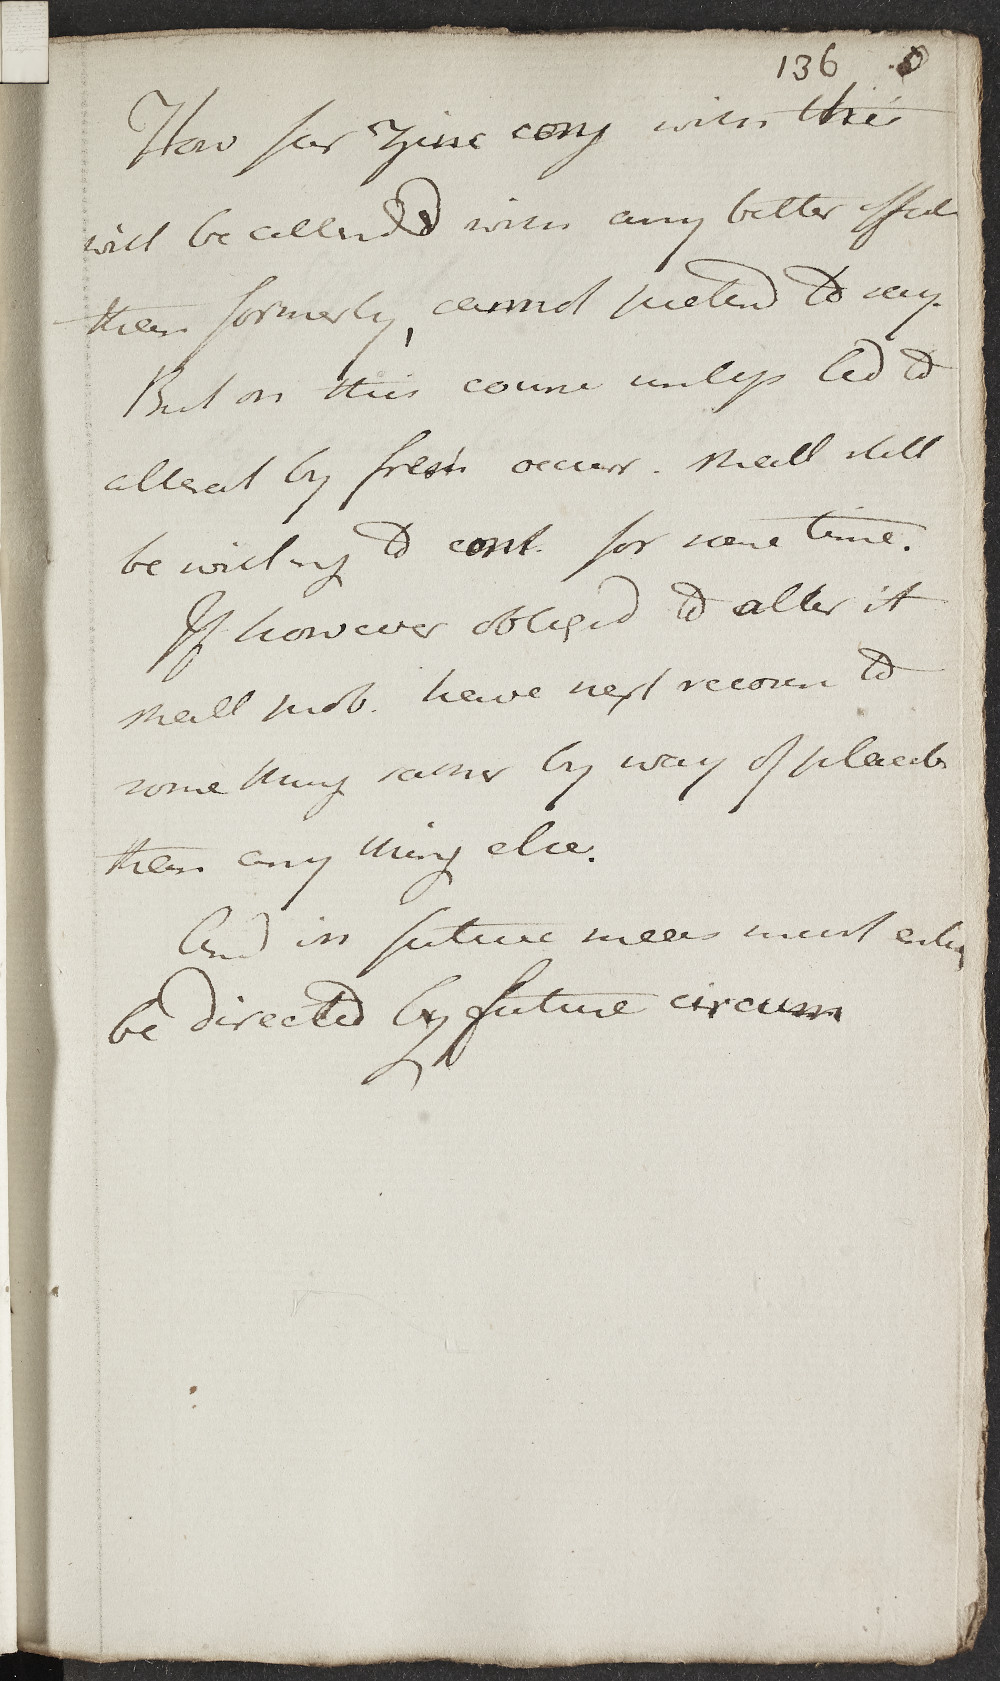 136
How far Zinc conj with this
will be attended with any better effect
than formerly, cannot pretend to say.
But on this course unless led to
alterat by fresh occurr. shall still
be willing to cont. for some time.
If however obliged to alter it
shall prob. have next recourse to
some thing rather by way of placebo
than any thing else.
And in future meas must entirely
be directed by future circum